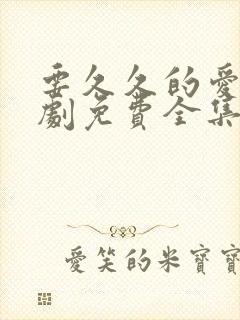 要久久的愛
劇免費全集
愛笑的米寶寶